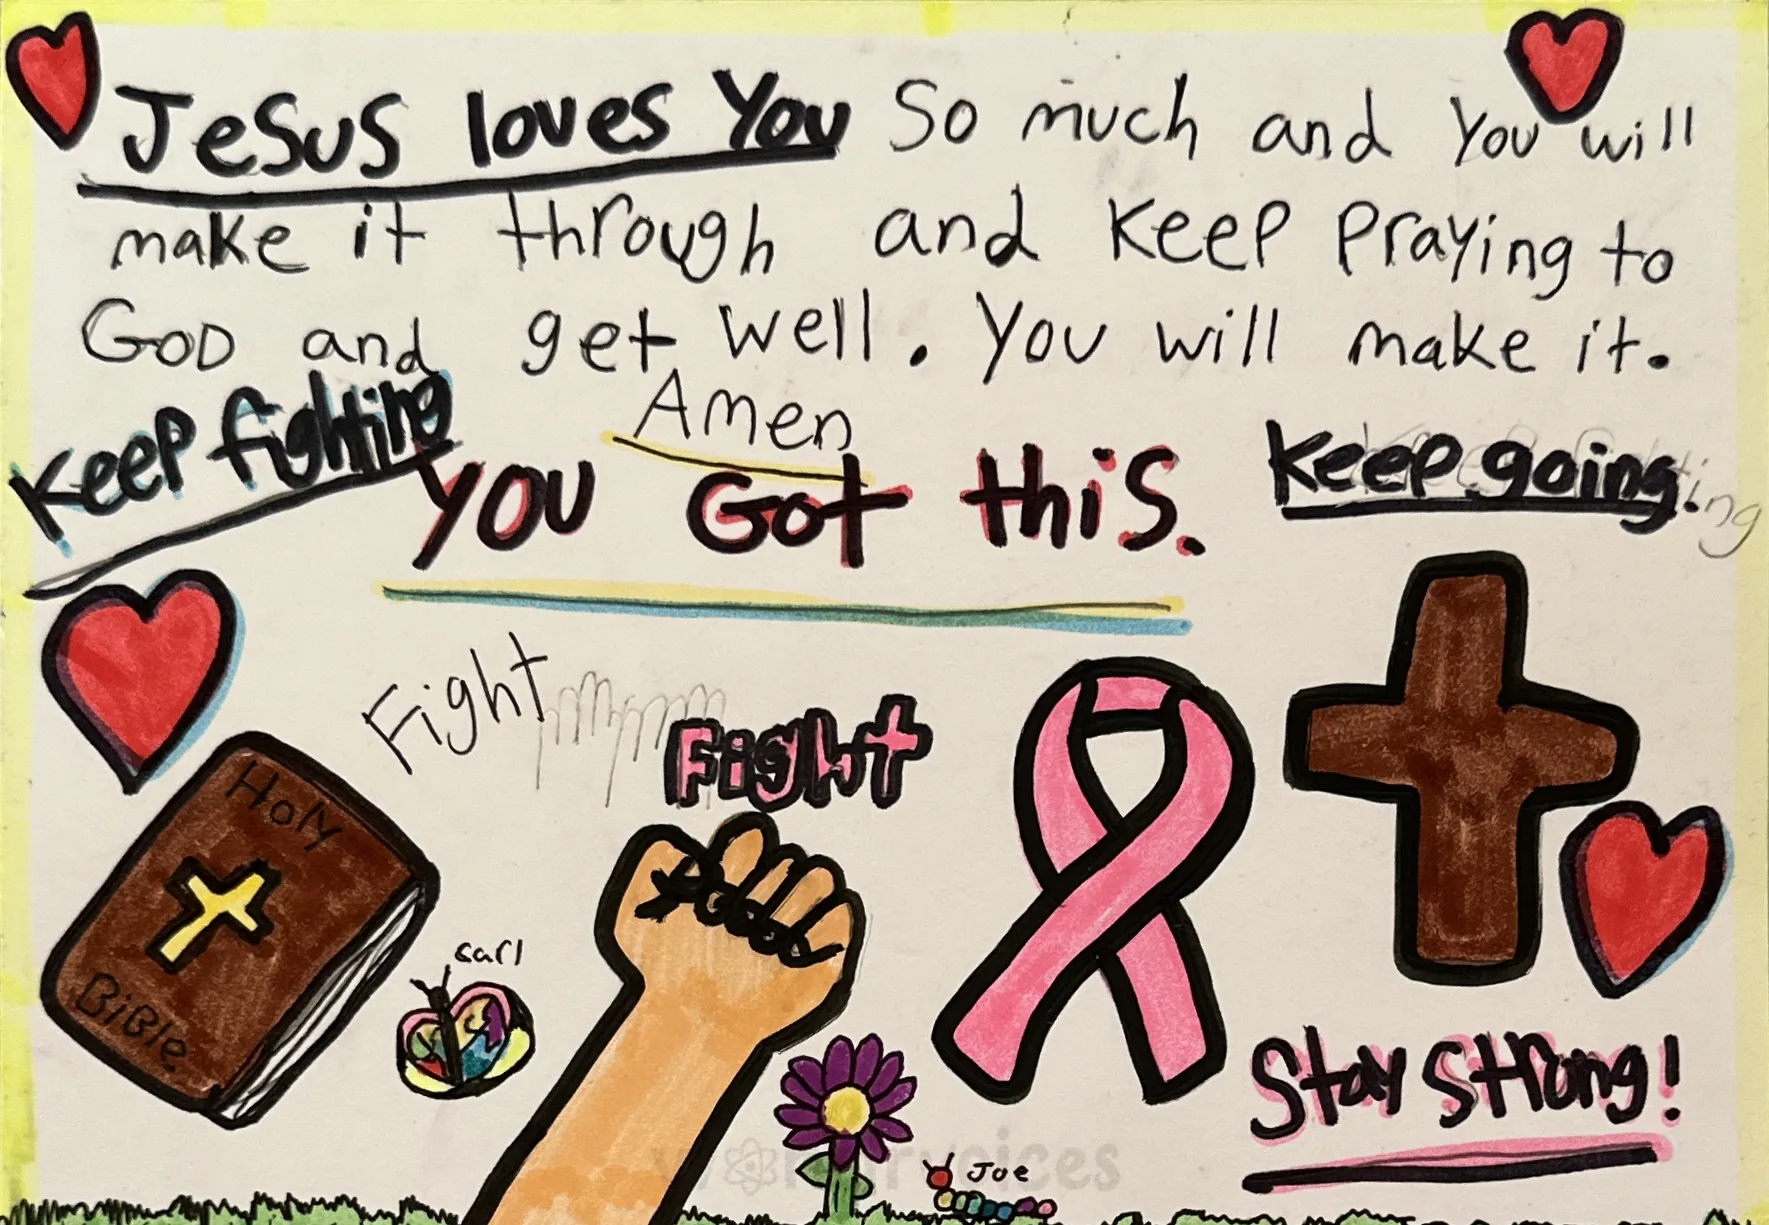 Jesus loves You So much and You will
make it through and keep praying to
God and get well. You will make it.
Amen
Keep fighting
You Got this.
Keep going.
Fight
Fight
Holy
Bible
carl
Stay Strong!
Joe